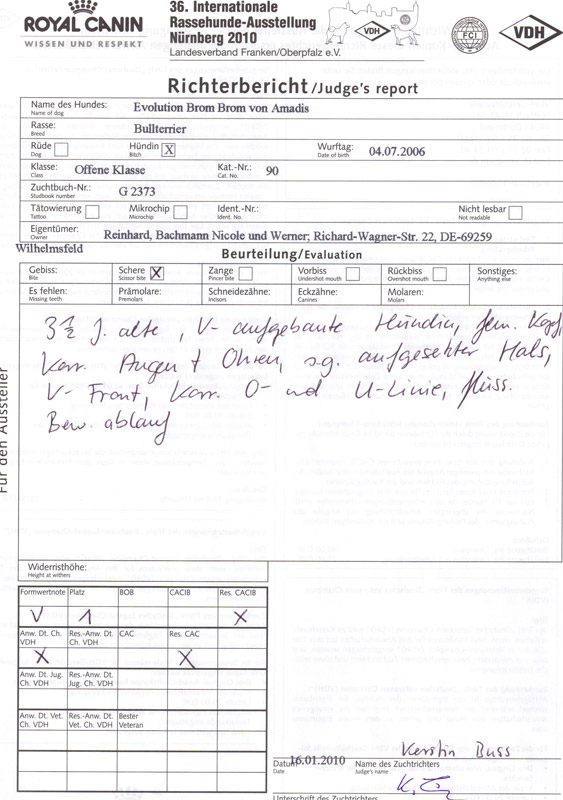 ROYAL CANIN
WISSEN UND RESPEKT
36. Internationale
Rassehunde-Ausstellung
Nürnberg 2010
Landesverband Franken/Oberpfalz e.V.
VDH
FCI
VDH
Richterbericht /Judge's report
Name des Hundes: Evolution Brom Brom von Amadis
Name of dog
Rasse: Bullterrier
Breed
Rüde Hündin X Wurftag: 04.07.2006
Dog Bitch Date of birth
Klasse: Offene Klasse Kat.-Nr.: 90
Class Cat. No.
Zuchtbuch-Nr.: G 2373
Studbook number
Tätowierung Mikrochip Ident.-Nr.: Nicht lesbar
Tattoo Microchip Ident. No. Not readable
Eigentümer: Reinhard, Bachmann Nicole und Werner; Richard-Wagner-Str. 22, DE-69259
Owner
Wilhelmsfeld
Beurteilung/Evaluation
Gebiss: Schere X Zange Vorbiss Rückbiss Sonstiges:
Bite Scissor bite Pincer bite Undershot mouth Overshot mouth Anything else
Es fehlen: Prämolare: Schneidezähne: Eckzähne: Molaren:
Missing teeth Premolars Incisors Canines Molars
3½ J. alte, V- aufgebaute Hündin, fem. Kopf,
korr. Augen + Ohren, s.g. aufgesetzter Hals,
V- Front, korr. O- und U-Linie, flüss.
Bew. ablauf
Für den Aussteller
Widerristhöhe:
Height at withers
Formwertnote Platz BOB CACIB Res. CACIB
V 1 X
Anw. Dt. Ch. VDH Res.-Anw. Dt. Ch. VDH CAC Res. CAC
X X
Anw. Dt. Jug. Ch. VDH Res.-Anw. Dt. Jug. Ch. VDH
Anw. Dt. Vet. Ch. VDH Res.-Anw. Dt. Vet. Ch. VDH Bester Veteran
Kerstin Buss
Datum 16.01.2010 Name des Zuchtrichters
Date Judge's name
Unterschrift des Zuchtrichters